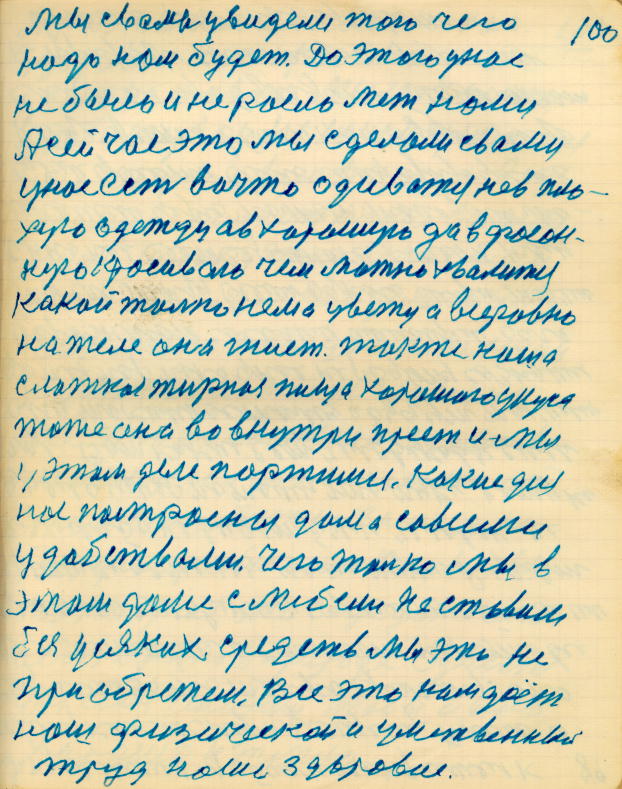 мы свами увидели того чего 100
надо нам будет. До этого унас
не было и не росло меж нами
А сей час это мы сделали свами
унас есть вочто одеватж нев пло-
хую одежду а в хорошую да в фасон-
ную
какой толко нема цвету а всеравно
на теле она гниет. также наша
слажная жирная пища хорошого укуса
тоже она во внутри преет и мы
у этом деле портим. Какие для
нас построены дома совсеми
удобствами. чего толко мы в
этом доме с мебели не ставили
без усяких средств мы это не
приобретем. Все это нам даёт
наш физический и умственный
труд наше здоровие.